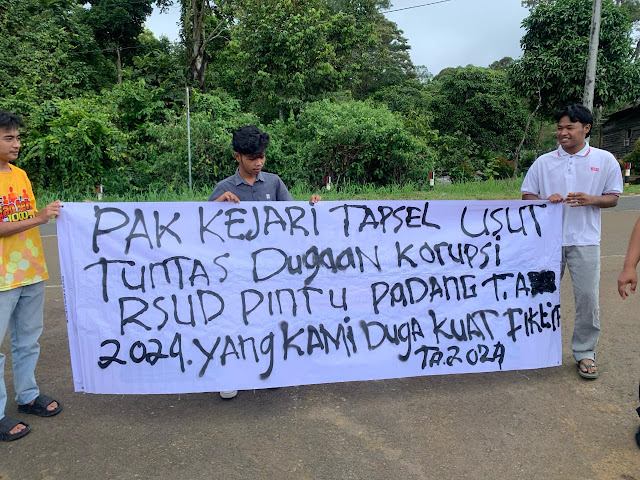 PAK KEJARI TAPSEL USUT
TUNTAS DUGAAN KORUPSI
RSUD PINTU PADANG T.A
2024. YANG KAMI DUGA KUAT FIKTIF
TA.2024